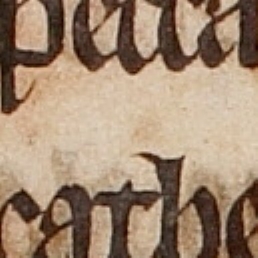 pecca
cathe